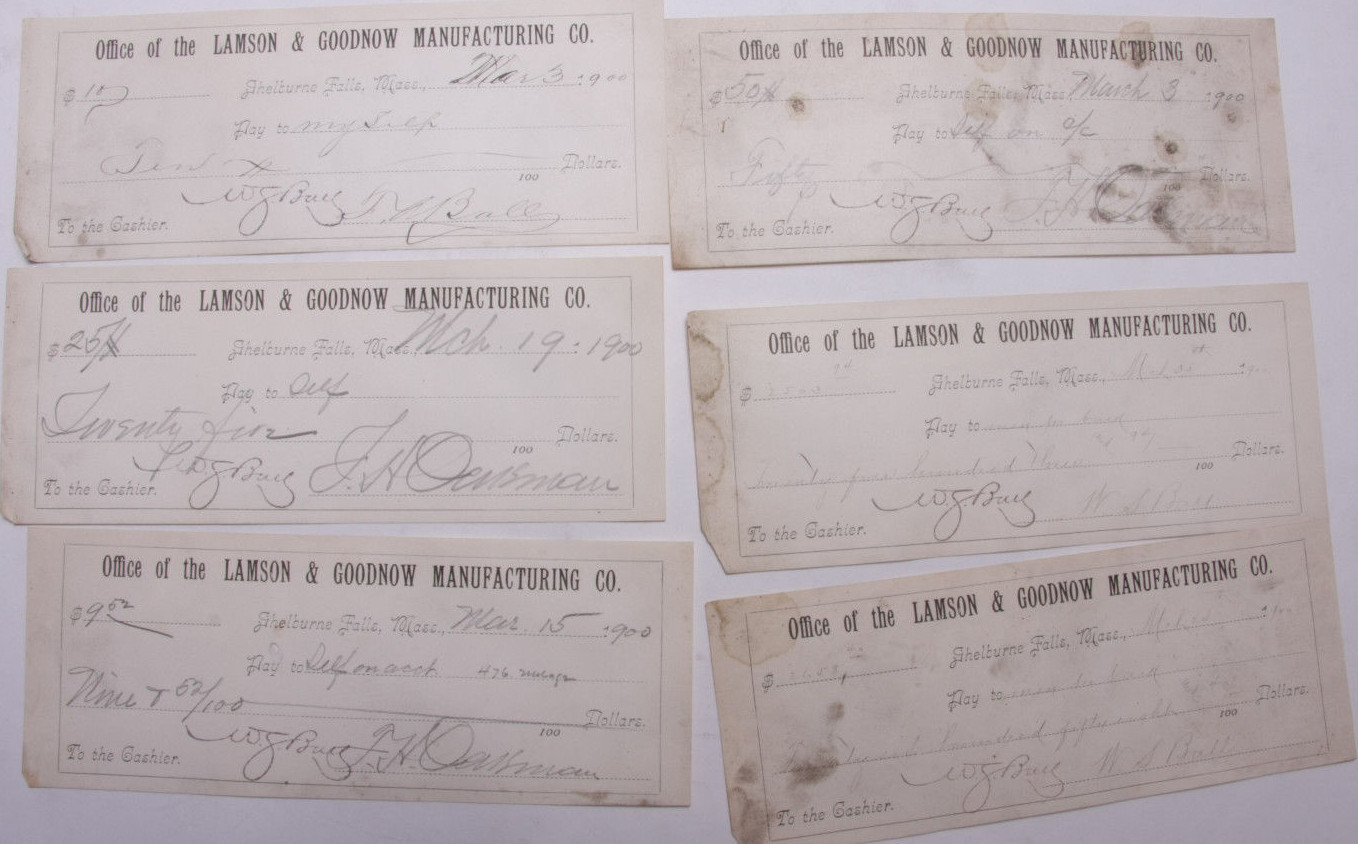 Office of the LAMSON & GOODNOW MANUFACTURING CO.
$10 Shelburne Falls, Mass., Mar 3 1900
Pay to myself
Ten
100 Dollars.
W.G. Bull F. N. Ball
To the Cashier.
Office of the LAMSON & GOODNOW MANUFACTURING CO.
$25 Shelburne Falls, Mass. Mch. 19. 1900
Pay to Self
Twenty five
100 Dollars.
W.G. Bull F. H. Oakman
To the Cashier.
Office of the LAMSON & GOODNOW MANUFACTURING CO.
$9 52 Shelburne Falls, Mass., Mar. 15 1900
Pay to Self on acct 476
Nine + 52/100
100 Dollars.
W.G. Bull F. H. Oakman
To the Cashier.
Office of the LAMSON & GOODNOW MANUFACTURING CO.
$50 Shelburne Falls, Mass. March 3 1900
Pay to Self on a/c
Fifty
100 Dollars.
W.G. Bull F. H. Oakman
To the Cashier.
Office of the LAMSON & GOODNOW MANUFACTURING CO.
$ Shelburne Falls, Mass.,
Pay to
hundred three
100 Dollars.
W.G. Bull W S Bull
To the Cashier.
Office of the LAMSON & GOODNOW MANUFACTURING CO.
$ Shelburne Falls, Mass.,
Pay to
hundred fifty eight
100 Dollars.
W.G. Bull W S Bull
To the Cashier.